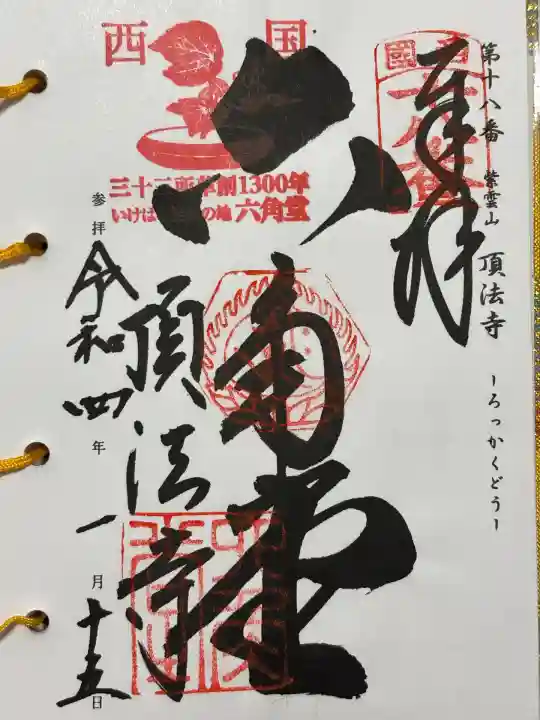 第十八番 紫雲山 頂法寺 ーろっかくどうー
奉拝
西国
三十三所草創1300年
いけばな発祥の地 六角堂
六角堂
頂法寺
参拝 令和四年一月十五日